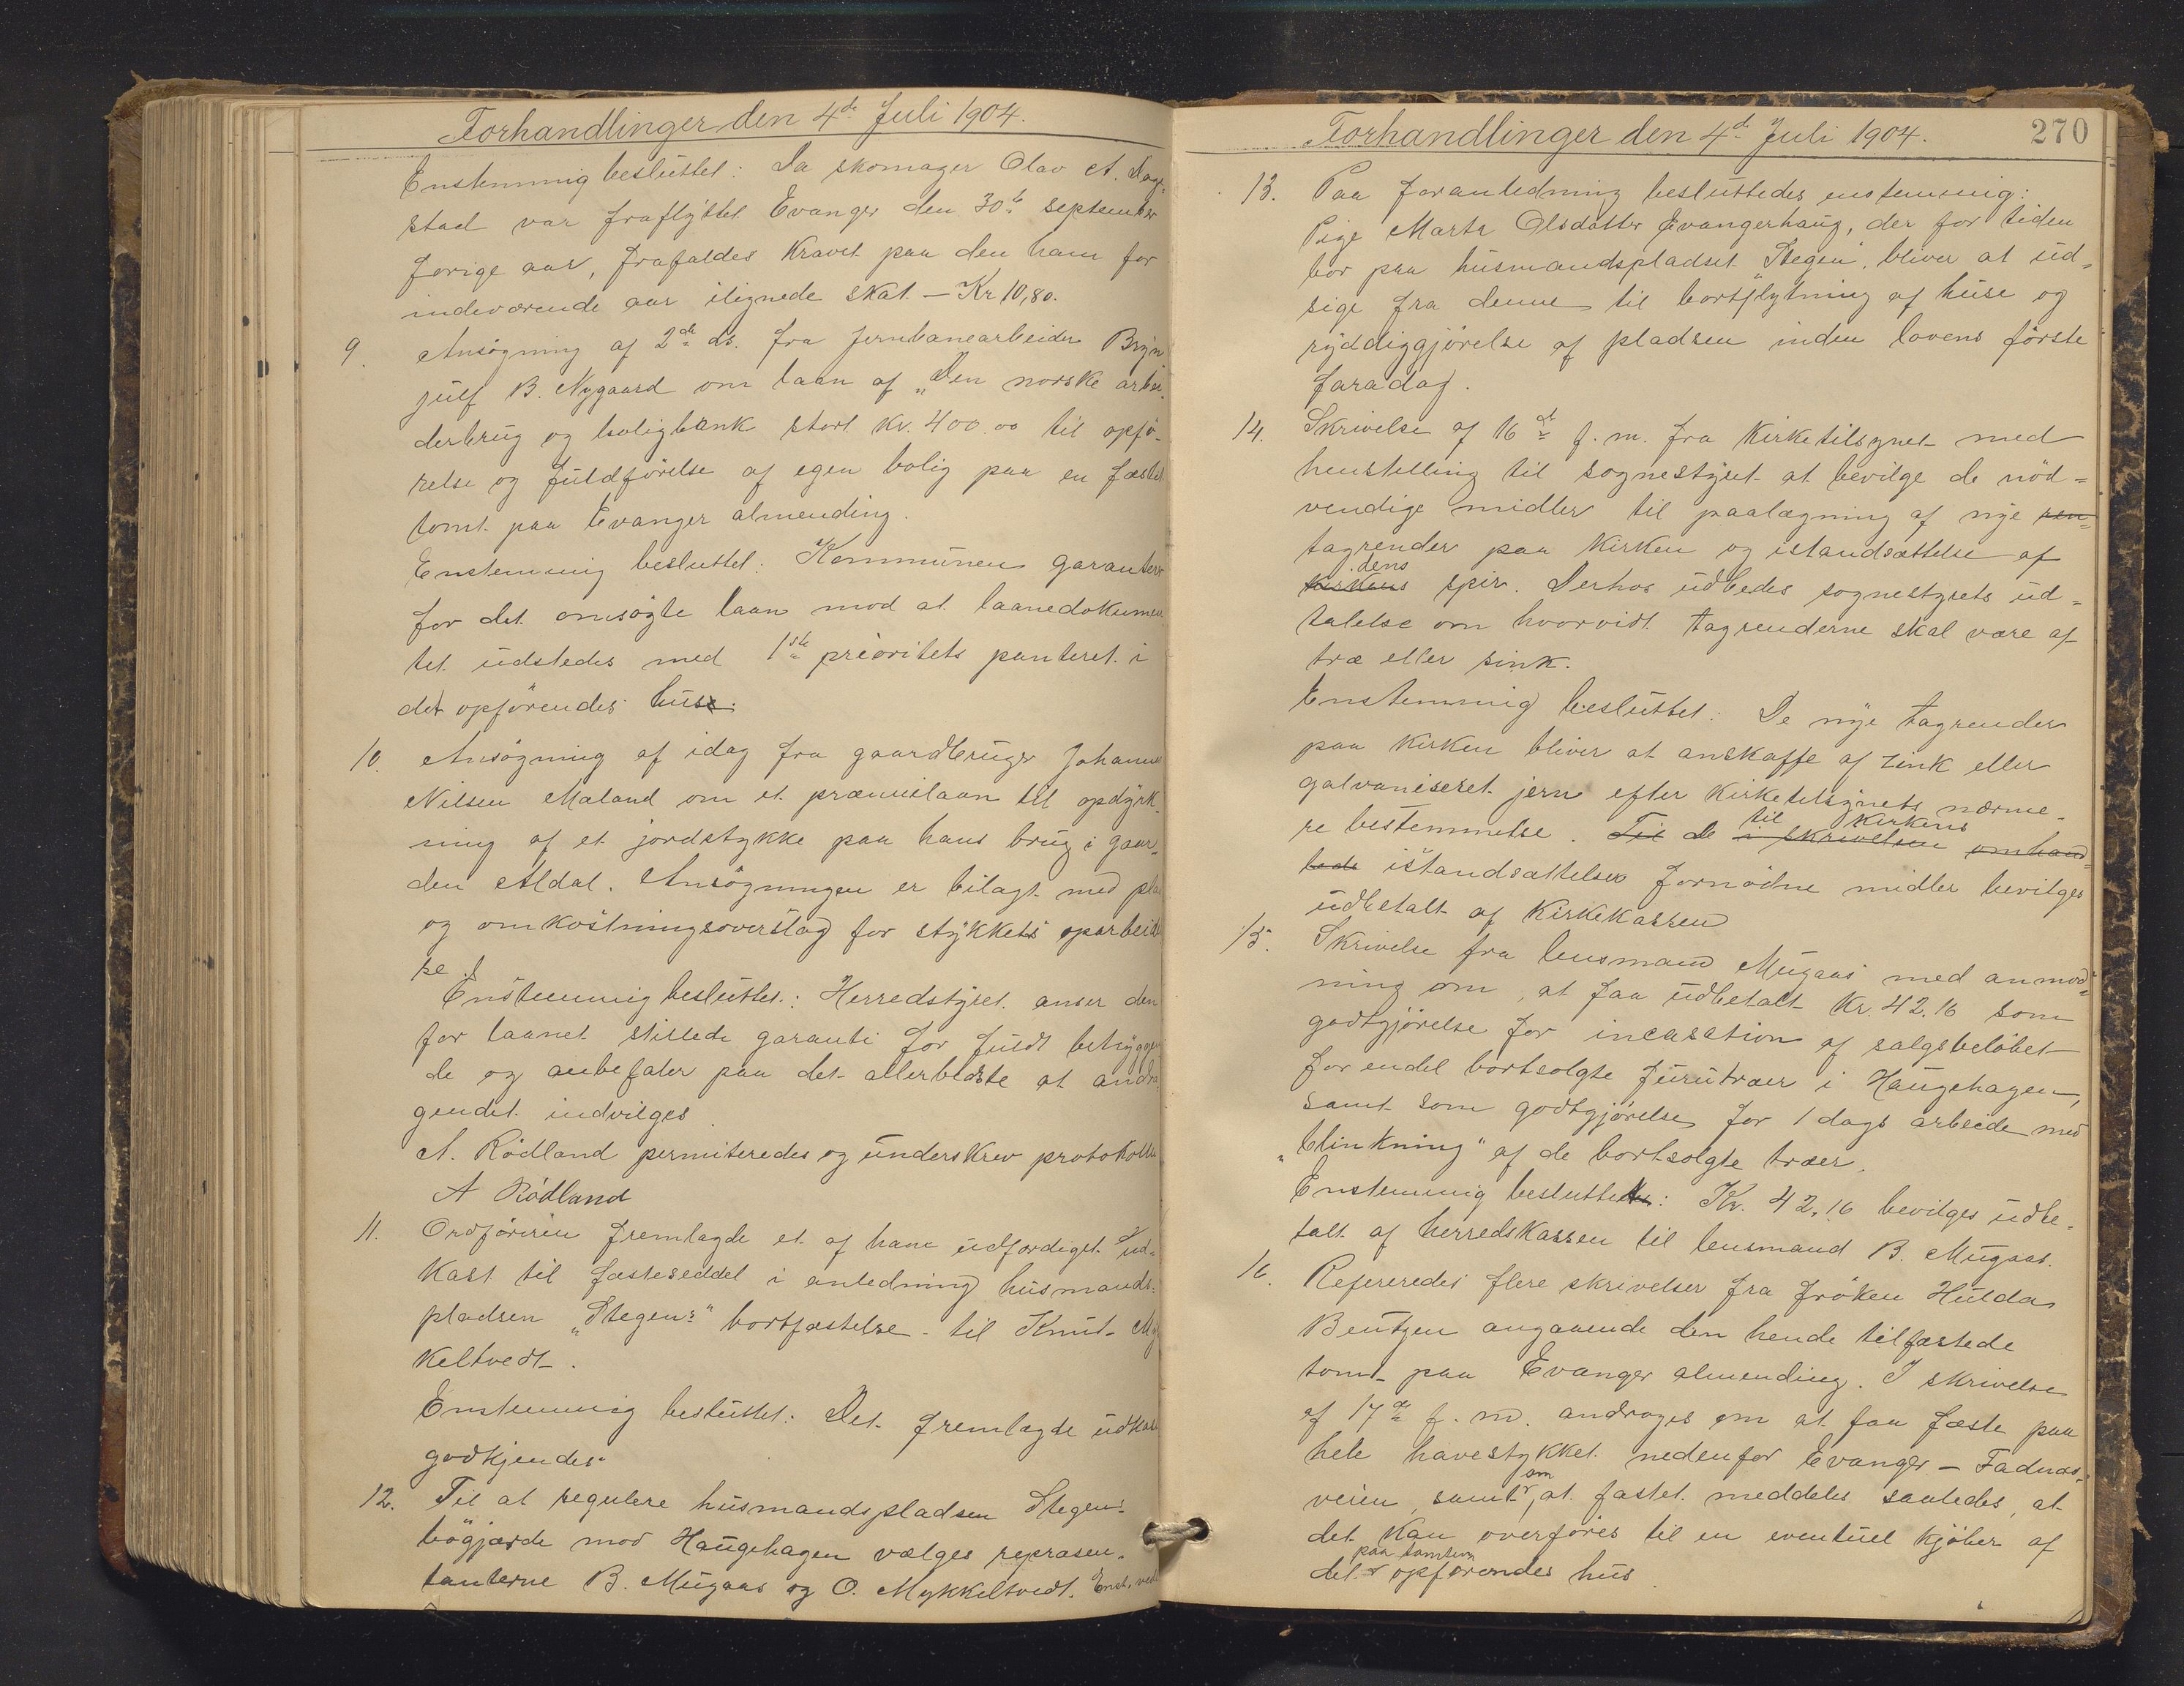 Forhandlinger den 4de Juli 1904.
Enstemmig besluttet: Da skomager Olav A. Dag=
stad var fraflyttet Evanger den 30te september
forige aar, frafaldes kravet paa den ham for
indeværende aar ilignede skat – Kr 10,80.
9. Ansögning af 2de ds. fra jernbanearbeider Bryn
julf B. Nygaard om laan af „Den norske arbei
derbrug og boligbank stort kr. 400.00 til opfö-
relse og fuldförelse af egen bolig paa en fæstet
tomt paa Evanger almending.
Enstemmig besluttet: Kommunen garanterer
for det omsögte laan mod at laanedokumen
tet udstedes med 1ste prioritets panteret i
det opförendes huse.
10. Ansögning af idag fra gaardbruger Johannes
Nilsen Maland om et præmielaan til opdyrk-
ning af et jordstykke paa hans brug i gaar=
den Aldal. Ansögningen er bilagt med plan
og omkostningsoverslag for stykkets oparbeidel
se.
Enstemmig besluttet: Herredstyret anser den
for laanet stillede garanti for fuldt betryggen
de og anbefaler paa det allerbedste at andra
gendet indvilges.
A. Rödland permiteredes og underskrev protokollen
A Rödland
11. Ordföreren fremlagde et af ham udfærdiget ud=
kast til fæsteseddel i anledning husmands=
pladsen „Stegens“ bortfæstelse til Knut My
keltvedt.
Enstemmig besluttet: Det fremlagde udkast
godkjendes.
12. Til at regulere husmandspladsen Stegens
bögjærde mod Haugehagen vælges repræsen-
tanterne B. Mugaas og O. Mykkeltvedt. Enst. ved
Forhandlinger den 4de Juli 1904.
270
13. Paa foranledning besluttedes enstemmig:
Pige Marta Olsdatter Evangerhaug, der for tiden
bor paa husmandspladset „Stegen“, bliver at ud=
sige fra denne til bortflytning af huse og
ryddiggjörelse af pladsen inden lovens förste
faradag.
14. Skrivelse af 16de f. m. fra kirketilsynet med
henstilling til sognestyret at bevilge de nöd=
vendige midler til paalægning af nye ren=
tagrender paa kirken og istandsættelse af
dens
kirkens spir. Derhos udbedes sognestyrets ud=
talelse om hvorvidt tagrenderne skal være af
træ eller sink.
Enstemmig besluttet: De nye tagrender
paa kirken bliver at anskaffe af zink eller
galvaniseret jern efter kirketilsynets nærme-
til kirkens
re bestemmelse. Til de i skrivelsen omhand=
lede istandsættelser fornödne midler bevilges
udbetalt af kirkekassen
15. Skrivelse fra lensmand Mugaas med anmod=
ning om, at faa udbetalt Kr. 42.16 som
godtgjörelse for incasation af salgsbelöbet
for endel bortsolgte furutrær i Haugehagen,
samt som godtgjörelse for 1 dags arbeide med
„blinkning“ af de bortsolgte trær.
Enstemmig besluttet: Kr. 42.16 bevilges udbe-
talt af herredskassen til lensmand B. Mugaas.
16. Refereredes flere skrivelser fra fröken Hulda
Bentzen angaaende den hende tilfæstede
tomt paa Evanger almending. I skrivelse
af 17de f. m. andrages om at faa fæste paa
hele havestykket nedenfor Evanger – Fadnæs-
om
veien, samt, at fæstet meddeles saaledes, at
det kan overföres til en eventuel kjöber af
paa tomten
det opförendes hus.